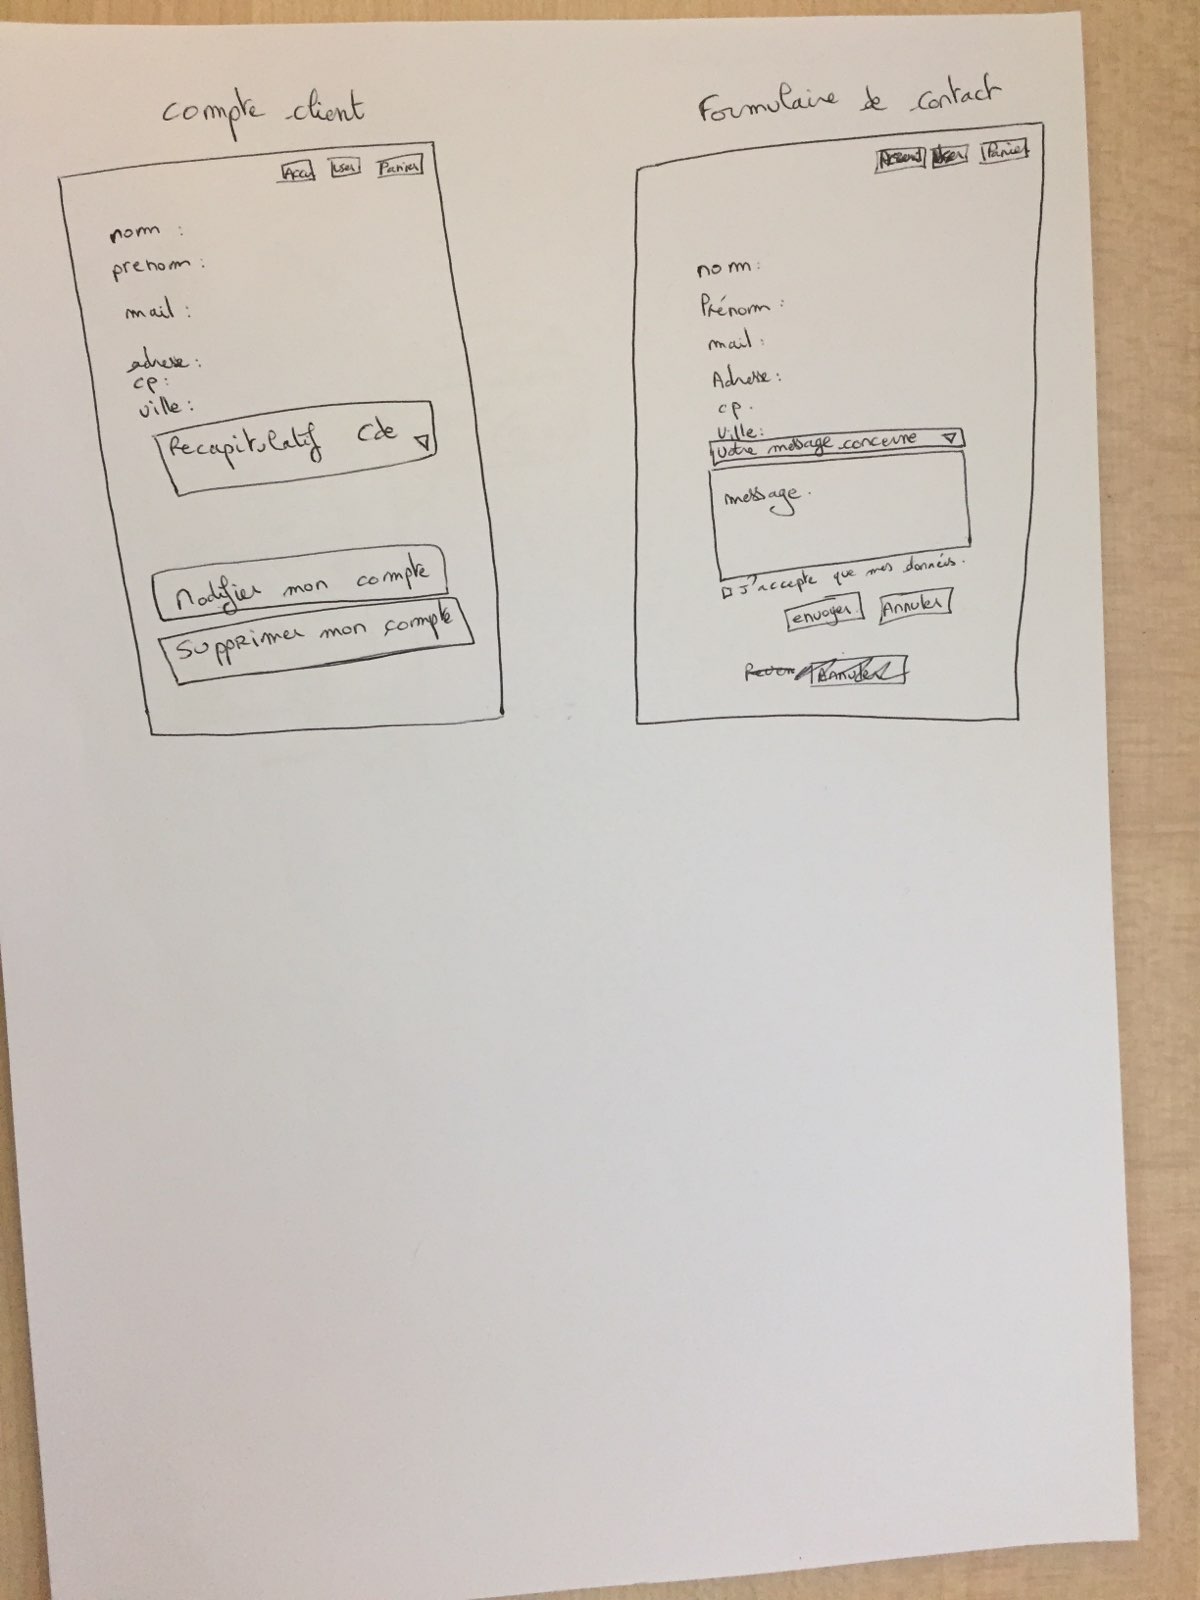 compte client
Accu User Panier
nom :
prenom :
mail :
adresse :
cp :
ville :
Recapitulatif Cde
Modifier mon compte
Supprimer mon compte
Formulaire de contact
User Panier
nom :
Prénom :
mail :
Adresse :
cp .
Ville :
Votre message concerne
message .
J'accepte que mes données .
envoyer Annuler
Annuler